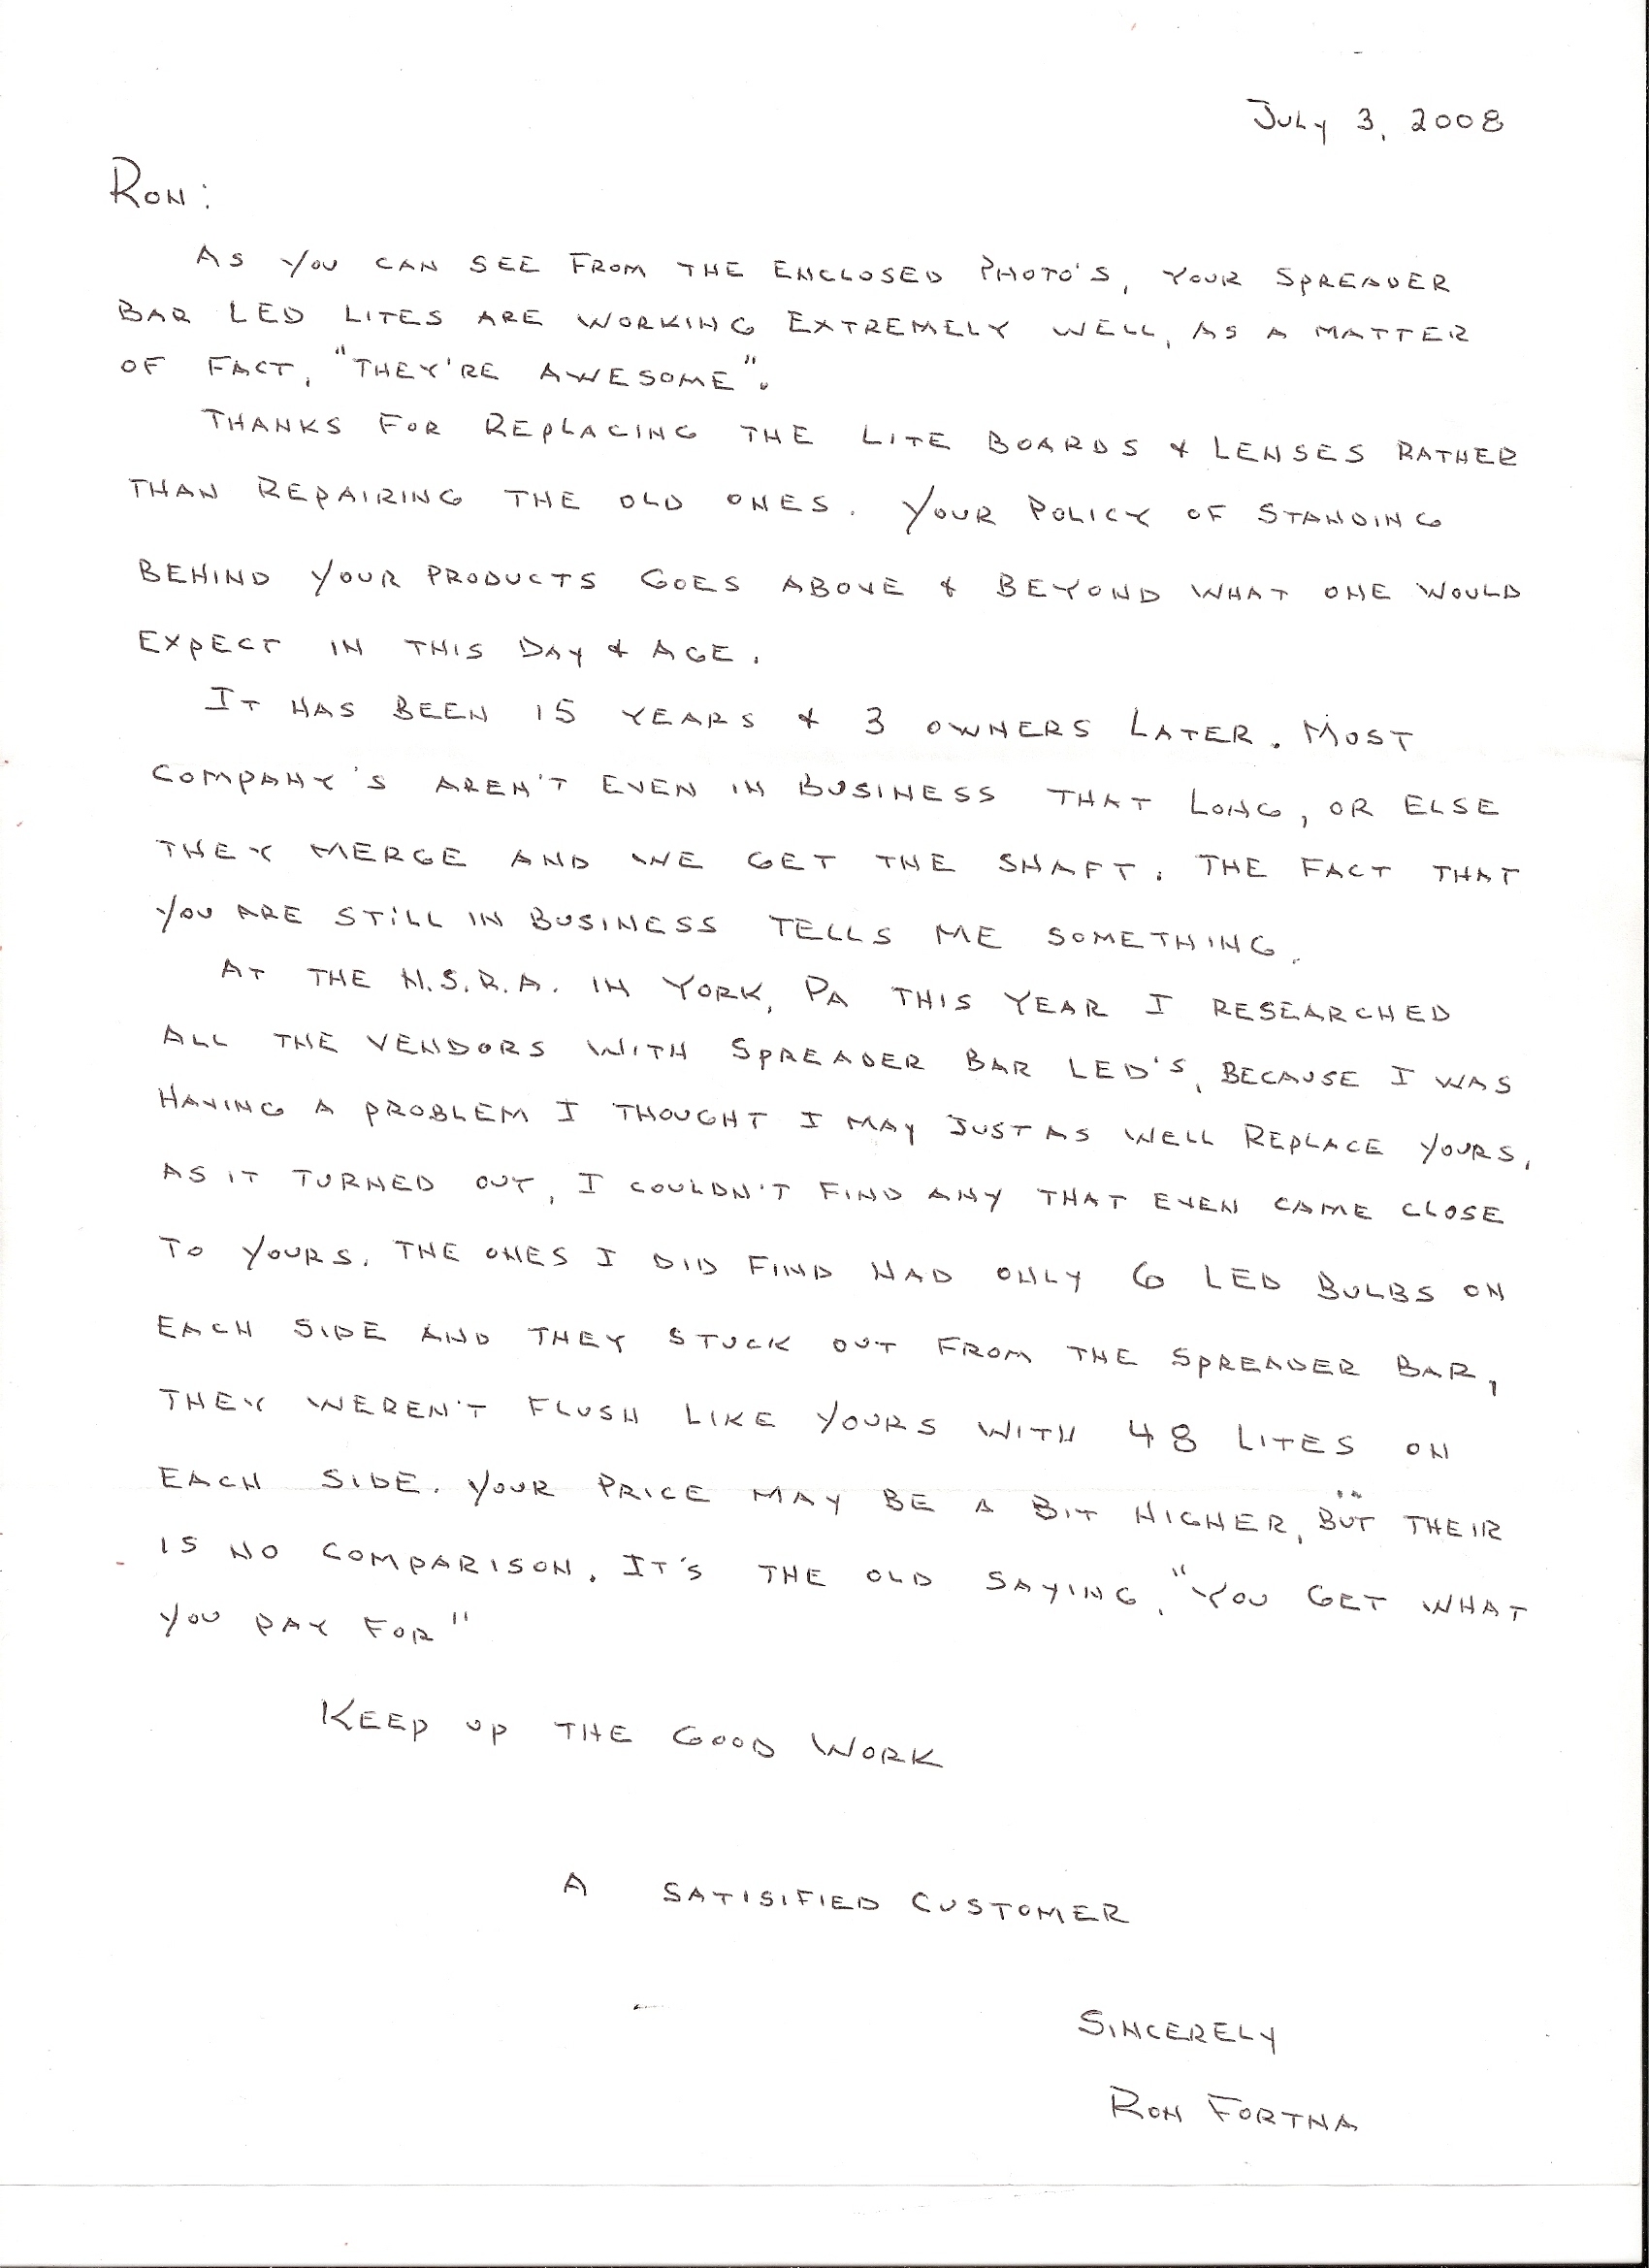 July 3, 2008
Ron:
As you can see from the enclosed photo's, your spreader
bar LED lites are working extremely well, as a matter
of fact, "they're awesome".
Thanks for replacing the lite boards & lenses rather
than repairing the old ones. Your policy of standing
behind your products goes above & beyond what one would
expect in this day & age.
It has been 15 years & 3 owners later. Most
company's aren't even in business that long, or else
they merge and we get the shaft. The fact that
you are still in business tells me something.
At the N.S.R.A. in York, Pa this year I researched
all the vendors with spreader bar LED's, because I was
having a problem I thought I may just as well replace yours,
as it turned out, I couldn't find any that even came close
to yours. The ones I did find had only 6 LED bulbs on
each side and they stuck out from the spreader bar,
they weren't flush like yours with 48 lites on
each side. Your price may be a bit higher, but their
is no comparison. It's the old saying, "you get what
you pay for"
Keep up the good work
A satisified customer
Sincerely
Ron Fortna